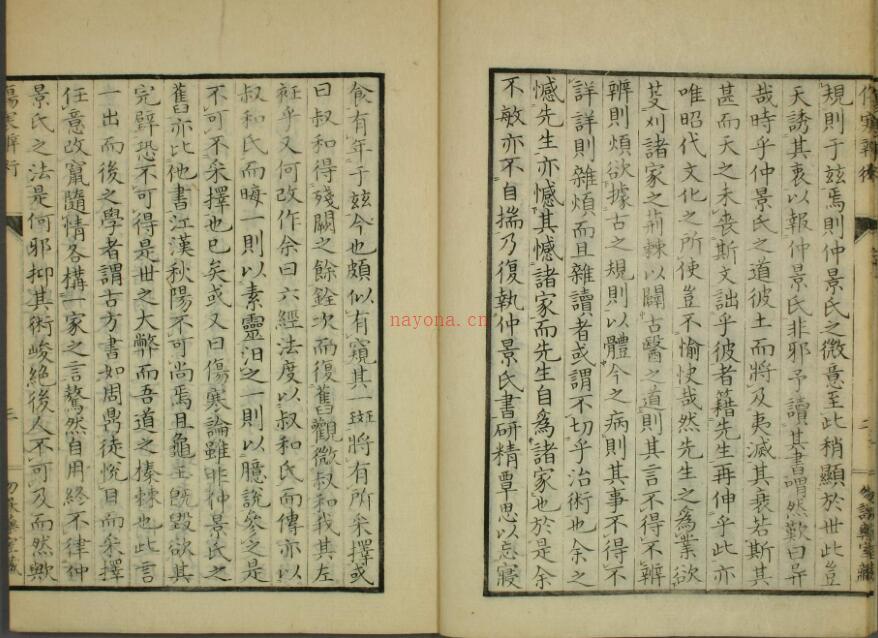 規則于茲焉則仲景氏之微意至此稍顯於世此豈
天誘其衷以報仲景氏非邪予讀其書喟然歎曰异
哉時乎仲景氏之道彼土而將及夷滅其衰若斯其
甚而天之未喪斯文詘乎彼者籍先生再伸乎此亦
唯昭代文化之所使豈不愉快哉然先生之爲業欲
芟刈諸家之荊棘以闢古醫之道則其言不得不辨
辨則煩欲據古之規則以體今之病則其事不得不
詳詳則雜煩而且雜讀者或謂不切乎治術也余之
憾先生亦憾其憾諸家而先生自爲諸家也於是余
不敏亦不自揣乃復執仲景氏書研精覃思以忘寢
食有年于茲今也頗似有窺其一斑將有所采擇或
曰叔和得殘闕之餘銓次而復舊觀微叔和我其左
衽乎又何改作余曰六經法度以叔和氏而傳亦以
叔和氏而晦一則以素靈汨之一則以臆說參之是
不可不采擇也已矣或又曰傷寒論雖非仲景氏之
舊亦比他書江漢秋陽不可尚焉且龜玉旣毀欲其
完璧恐不可得是世之大弊而吾道之榛棘也此言
一出而後之學者謂古方書如周鼎徒悅目而采擇
任意改竄隨情各構一家之言驁然自用終不律仲
景氏之法是何邪抑其術峻絕後人不可及而然歟
三
nayona.cn